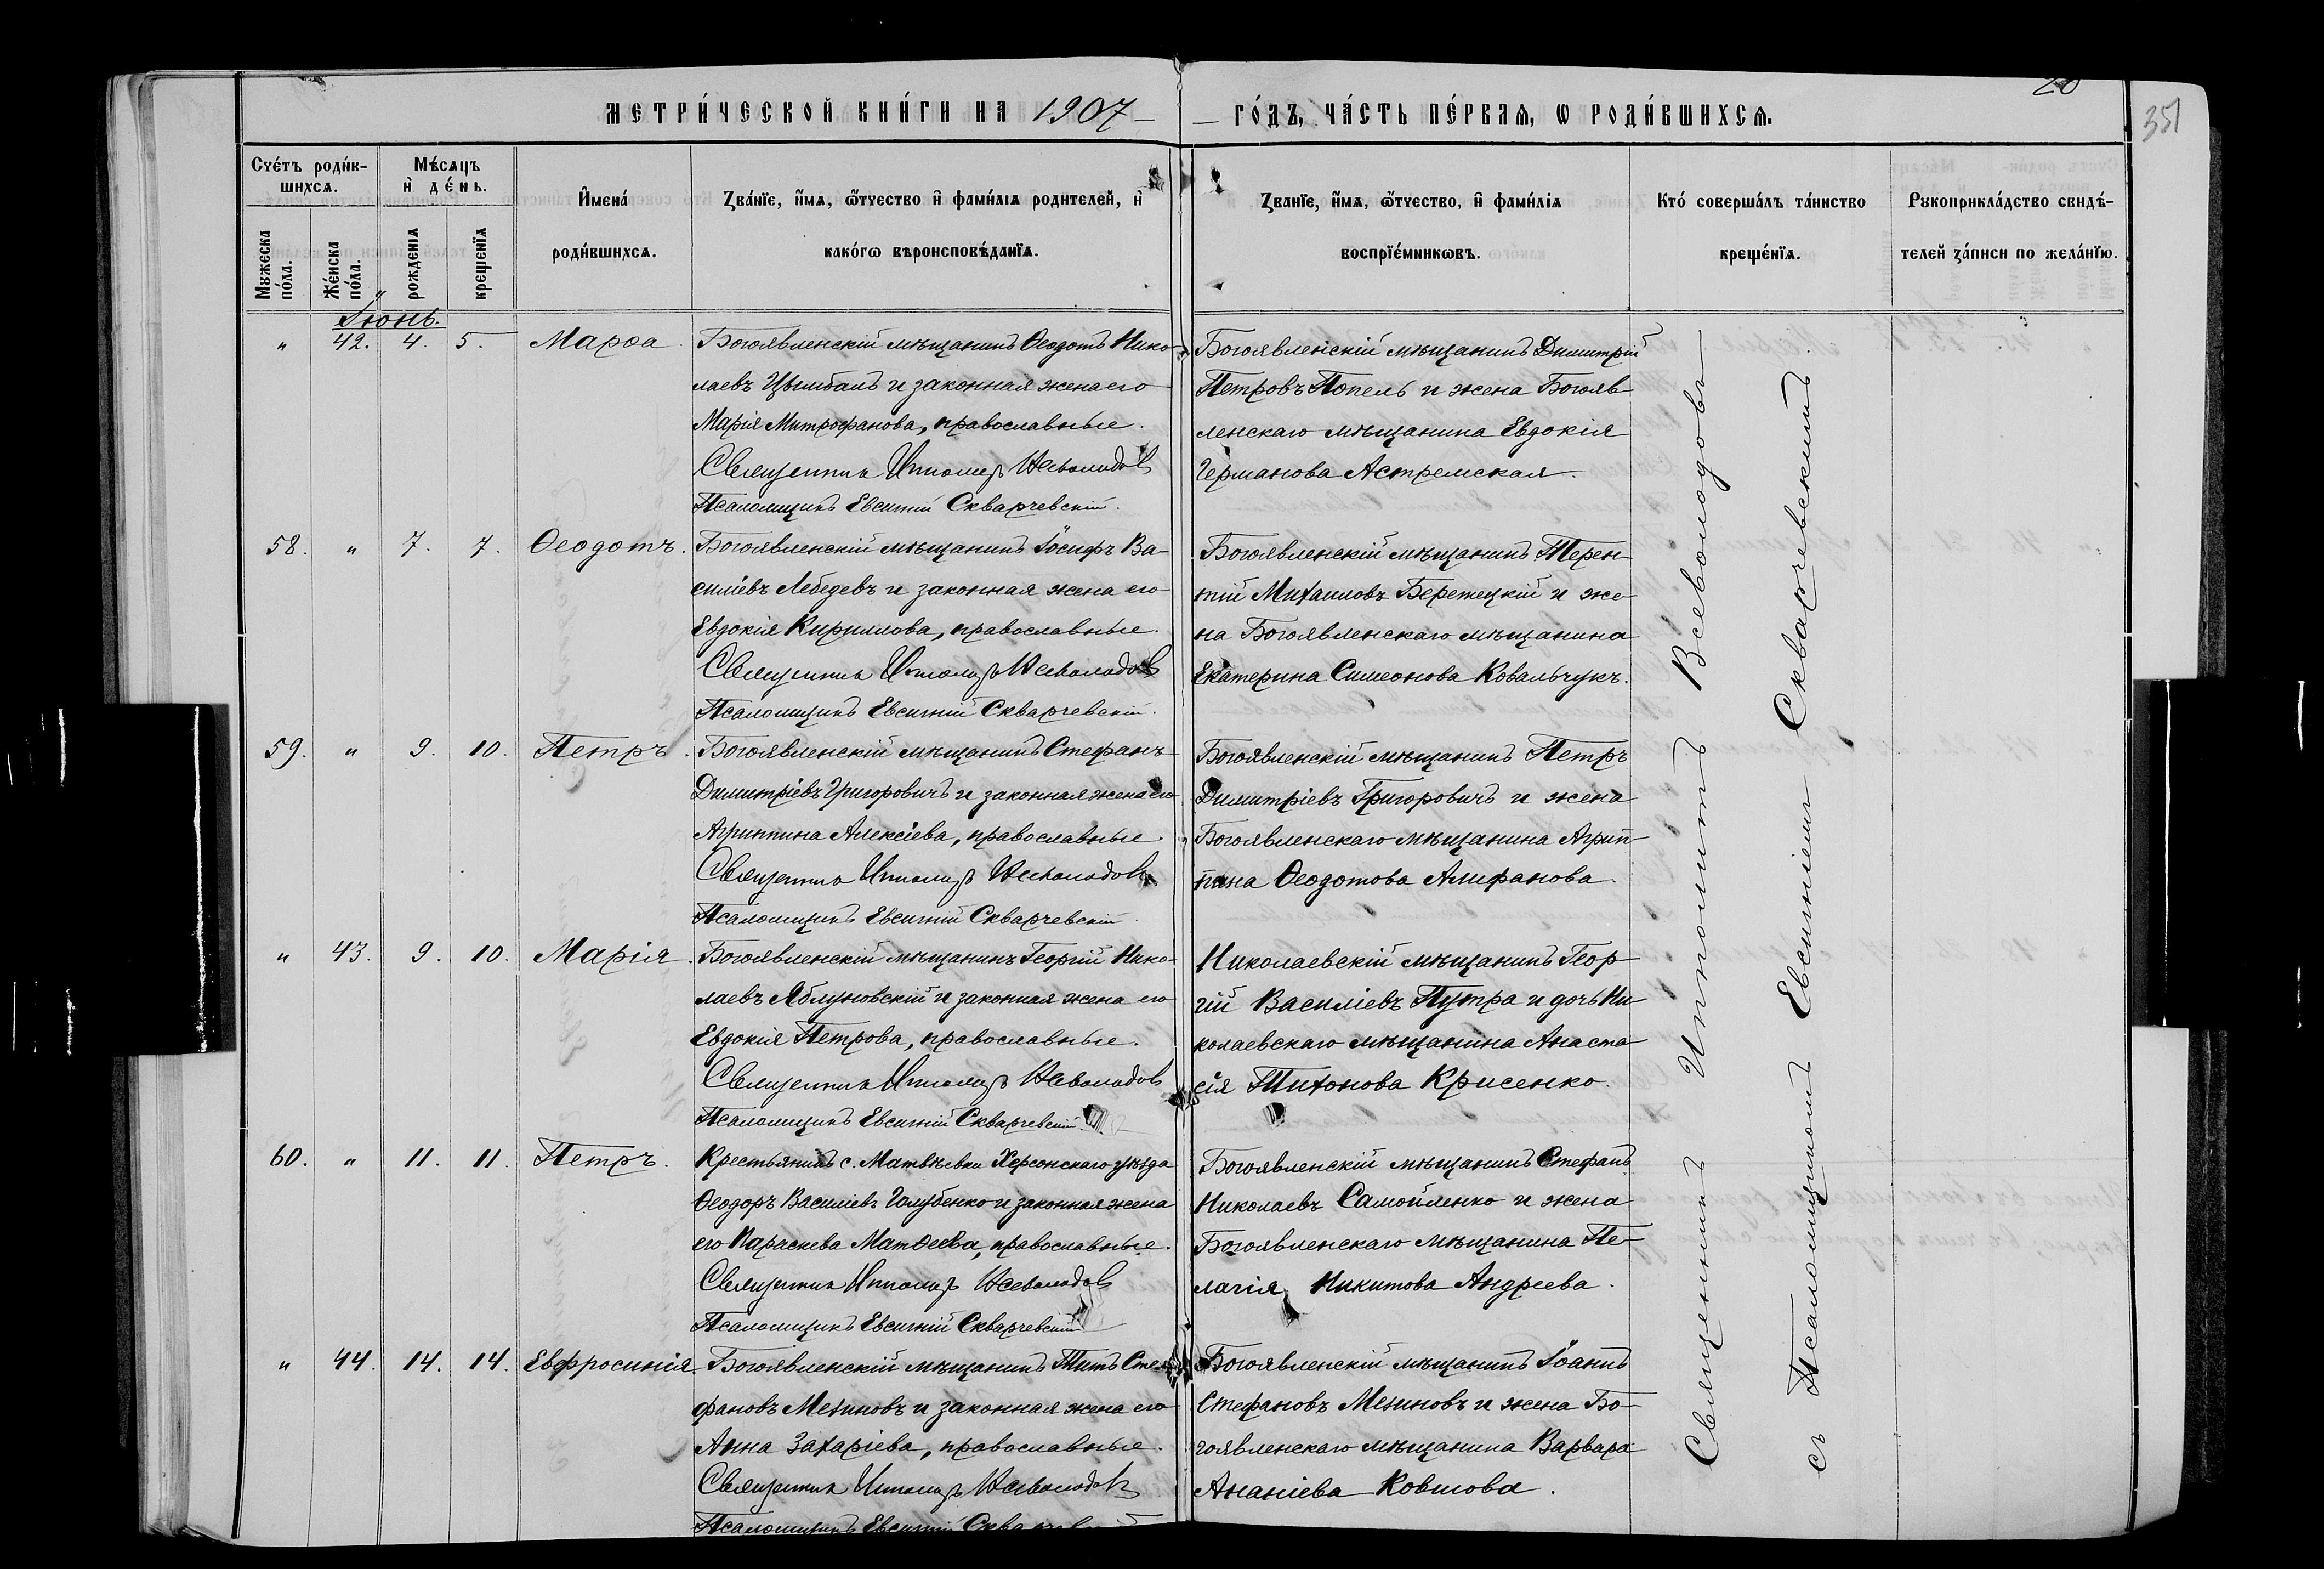 20
351
МЕТРИ́ЧЕСКОЙ КНИ́ГИ НА 1907
ГО́ДЪ, ЧА́СТЬ ПЕ́РВАѦ, Ѡ РОДИ́ВШИХСѦ.
Сче́тъ роди́в-
шихсѧ.
Мꙋжеска
по́ла.
Же́нска
по́ла.
Мѣ́сѧцъ
и҆ де́нь.
рожденїѧ
крещенїѧ
И҆мена́
роди́вшихсѧ.
Зва́нїе, и҆́мѧ, ѻ҆́тчество и҆ фами́лїѧ родителей, и҆
како́гѡ вѣроисповѣ́данїѧ.
Званїе, и҆́мѧ, ѻ҆́тчество, и҆ фами́лїѧ
воспрїе́мникѡвъ.
Кто́ соверша́лъ та́инство
креще́нїѧ.
Рꙋкоприкла́дство свидѣ́-
телей за́писи по жела́нїю.
Іюнь.
" 42. 4. 5. Марѳа.
Богоявленскій мѣщанинъ Ѳеодотъ Нико-
лаевъ Цымбалъ и законная жена его
Марія Митрофанова, православные.
Священникъ Ипполитъ Всеволодовъ
Псаломщикъ Евсигній Скварчевскій.
Богоявленскій мѣщанинъ Димитрій
Петровъ Попель и жена Богояв
ленскаго мѣщанина Евдокія
Германова Астремская.
58. " 7. 7. Ѳеодотъ.
Богоявленскій мѣщанинъ Іосифъ Ва-
силіевъ Лебедевъ и законная жена его
Евдокія Кириллова, православные.
Священникъ Ипполитъ Всеволодовъ
Псаломщикъ Евсигній Скварчевскій.
Богоявленскій мѣщанинъ Терен-
тій Михаиловъ Бережецкій и же-
на Богоявленскаго мѣщанина
Екатерина Симеонова Ковальчукъ.
59. " 9. 10. Петръ.
Богоявленскій мѣщанинъ Стефанъ
Димитріевъ Григоровичъ и законная жена его
Агриппина Алексіева, православные.
Священникъ Ипполитъ Всеволодовъ
Псаломщикъ Евсигній Скварчевскій.
Богоявленскій мѣщанинъ Петръ
Димитріевъ Григоровичъ и жена
Богоявленскаго мѣщанина Агрип-
пина Ѳеодотова Алифанова.
" 43. 9. 10. Марія.
Богоявленскій мѣщанинъ Георгій Нико-
лаевъ Яблуновскій и законная жена его
Евдокія Петрова, православные.
Священникъ Ипполитъ Всеволодовъ
Псаломщикъ Евсигній Скварчевскій.
Николаевскій мѣщанинъ Геор-
гій Василіевъ Путра и дочь Ни-
колаевскаго мѣщанина Анаста-
сія Тихонова Крисенко.
60. " 11. 11. Петръ.
Крестьянинъ с. Матвѣевки Херсонскаго уѣзда
Ѳеодоръ Василіевъ Голубенко и законная жена
его Параскева Матѳеева, православные.
Священникъ Ипполитъ Всеволодовъ
Псаломщикъ Евсигній Скварчевскій
Богоявленскій мѣщанинъ Стефанъ
Николаевъ Самойленко и жена
Богоявленскаго мѣщанина Пе-
лагія Никитова Андреева.
" 44. 14. 14. Евфросинія.
Богоявленскій мѣщанинъ Титъ Сте-
фановъ Мезиновъ и законная жена его
Анна Захаріева, православные.
Священникъ Ипполитъ Всеволодовъ
Псаломщикъ Евсигній Скварчевскій
Богоявленскій мѣщанинъ Іоаннъ
Стефановъ Мезиновъ и жена Бо-
гоявленскаго мѣщанина Варвара
Ананіева Ковшова.
Священникъ Ипполитъ Всеволодовъ
съ Псаломщикомъ Евсигніемъ Скварчевскимъ.